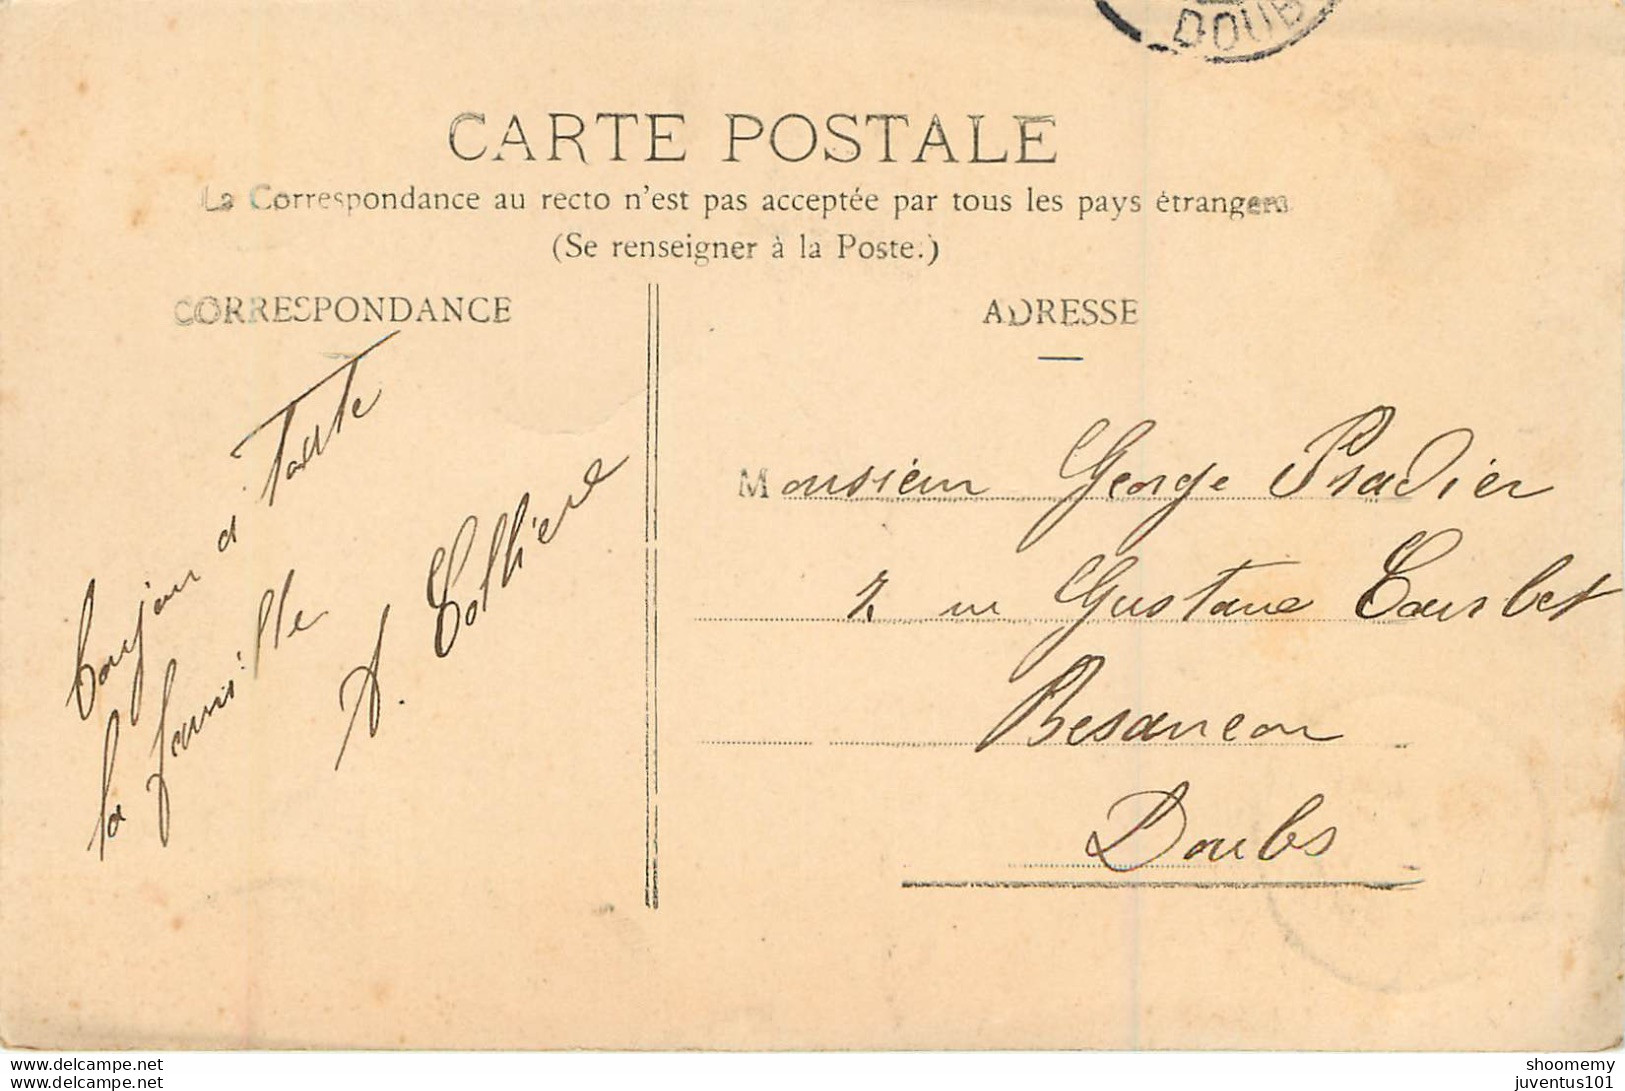 DOUB
CARTE POSTALE
La Correspondance au recto n'est pas acceptée par tous les pays étrangers
(Se renseigner à la Poste.)
CORRESPONDANCE
bonjour a toute
la famille
A. Collière
ADRESSE
Monsieur George Pradier
2 rue Gustave Courbet
Besancon
Doubs
www.delcampe.net
juventus101
shoomemy
juventus101